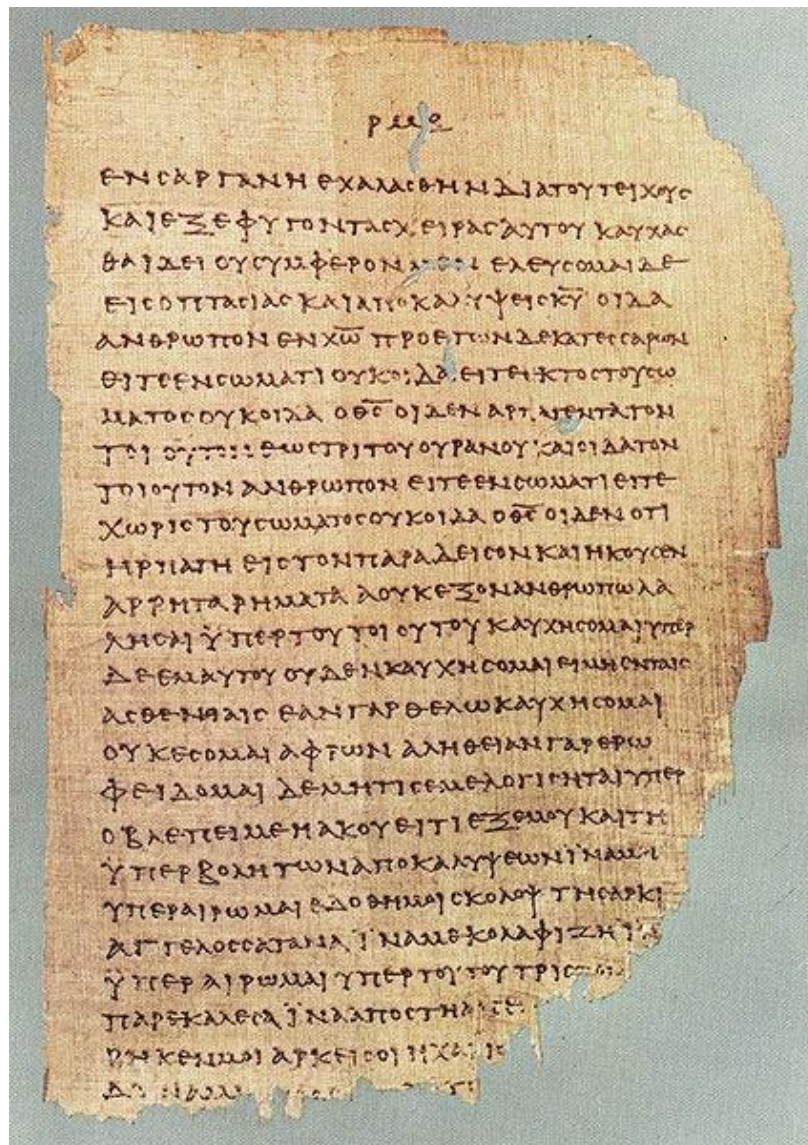 ΡΜΘ
ΕΝ ΣΑΡΓΑΝΗ ΕΧΑΛΑΣΘΗΝ ΔΙΑ ΤΟΥ ΤΕΙΧΟΥΣ
ΚΑΙ ΕΞΕΦΥΓΟΝ ΤΑΣ ΧΕΙΡΑΣ ΑΥΤΟΥ ΚΑΥΧΑΣ
ΘΑΙ ΔΕΙ ΟΥ ΣΥΜΦΕΡΟΝ ΕΛΕΥΣΟΜΑΙ ΔΕ
ΕΙΣ ΟΠΤΑΣΙΑΣ ΚΑΙ ΑΠΟΚΑΛΥΨΕΙΣ Κ̅Υ̅ ΟΙΔΑ
ΑΝΘΡΩΠΟΝ ΕΝ Χ̅Ω̅ ΠΡΟ ΕΤΩΝ ΔΕΚΑΤΕΣΣΑΡΩΝ
ΕΙΤΕ ΕΝ ΣΩΜΑΤΙ ΟΥΚ ΟΙΔΑ ΕΙΤΕ ΕΚΤΟΣ ΤΟΥ ΣΩ
ΜΑΤΟΣ ΟΥΚ ΟΙΔΑ Ο Θ̅Σ̅ ΟΙΔΕΝ ΑΡΠΑΓΕΝΤΑ ΤΟΝ
ΤΟΙΟΥΤΟΝ ΕΩΣ ΤΡΙΤΟΥ ΟΥΡΑΝΟΥ ΚΑΙ ΟΙΔΑ ΤΟΝ
ΤΟΙΟΥΤΟΝ ΑΝΘΡΩΠΟΝ ΕΙΤΕ ΕΝ ΣΩΜΑΤΙ ΕΙΤΕ
ΧΩΡΙΣ ΤΟΥ ΣΩΜΑΤΟΣ ΟΥΚ ΟΙΔΑ Ο Θ̅Σ̅ ΟΙΔΕΝ ΟΤΙ
ΗΡΠΑΓΗ ΕΙΣ ΤΟΝ ΠΑΡΑΔΕΙΣΟΝ ΚΑΙ ΗΚΟΥΣΕΝ
ΑΡΡΗΤΑ ΡΗΜΑΤΑ Α ΟΥΚ ΕΞΟΝ ΑΝΘΡΩΠΩ ΛΑ
ΛΗΣΑΙ ΫΠΕΡ ΤΟΥ ΤΟΙΟΥΤΟΥ ΚΑΥΧΗΣΟΜΑΙ ΥΠΕΡ
ΔΕ ΕΜΑΥΤΟΥ ΟΥΔΕΝ ΚΑΥΧΗΣΟΜΑΙ ΕΙ ΜΗ ΕΝ ΤΑΙΣ
ΑΣΘΕΝΕΙΑΙΣ ΕΑΝ ΓΑΡ ΘΕΛΩ ΚΑΥΧΗΣΟΜΑΙ
ΟΥΚ ΕΣΟΜΑΙ ΑΦΡΩΝ ΑΛΗΘΕΙΑΝ ΓΑΡ ΕΡΩ
ΦΕΙΔΟΜΑΙ ΔΕ ΜΗ ΤΙΣ ΕΜΕ ΛΟΓΙΣΗΤΑΙ ΥΠΕΡ
Ο ΒΛΕΠΕΙ ΜΕ Η ΑΚΟΥΕΙ ΤΙ ΕΞ ΕΜΟΥ ΚΑΙ ΤΗ
ΫΠΕΡΒΟΛΗ ΤΩΝ ΑΠΟΚΑΛΥΨΕΩΝ ΪΝΑ ΜΗ
ΥΠΕΡΑΙΡΩΜΑΙ ΕΔΟΘΗ ΜΟΙ ΣΚΟΛΟΨ ΤΗ ΣΑΡΚΙ
ΑΓΓΕΛΟΣ ΣΑΤΑΝΑ ΪΝΑ ΜΕ ΚΟΛΑΦΙΖΗ
ΫΠΕΡΑΙΡΩΜΑΙ ΥΠΕΡ ΤΟΥΤΟΥ ΤΡΙΣ
ΠΑΡΕΚΑΛΕΣΑ ΪΝΑ ΑΠΟΣΤΗ
ΡΗΚΕΝ ΜΟΙ ΑΡΚΕΙ ΣΟΙ Η ΧΑΡΙΣ